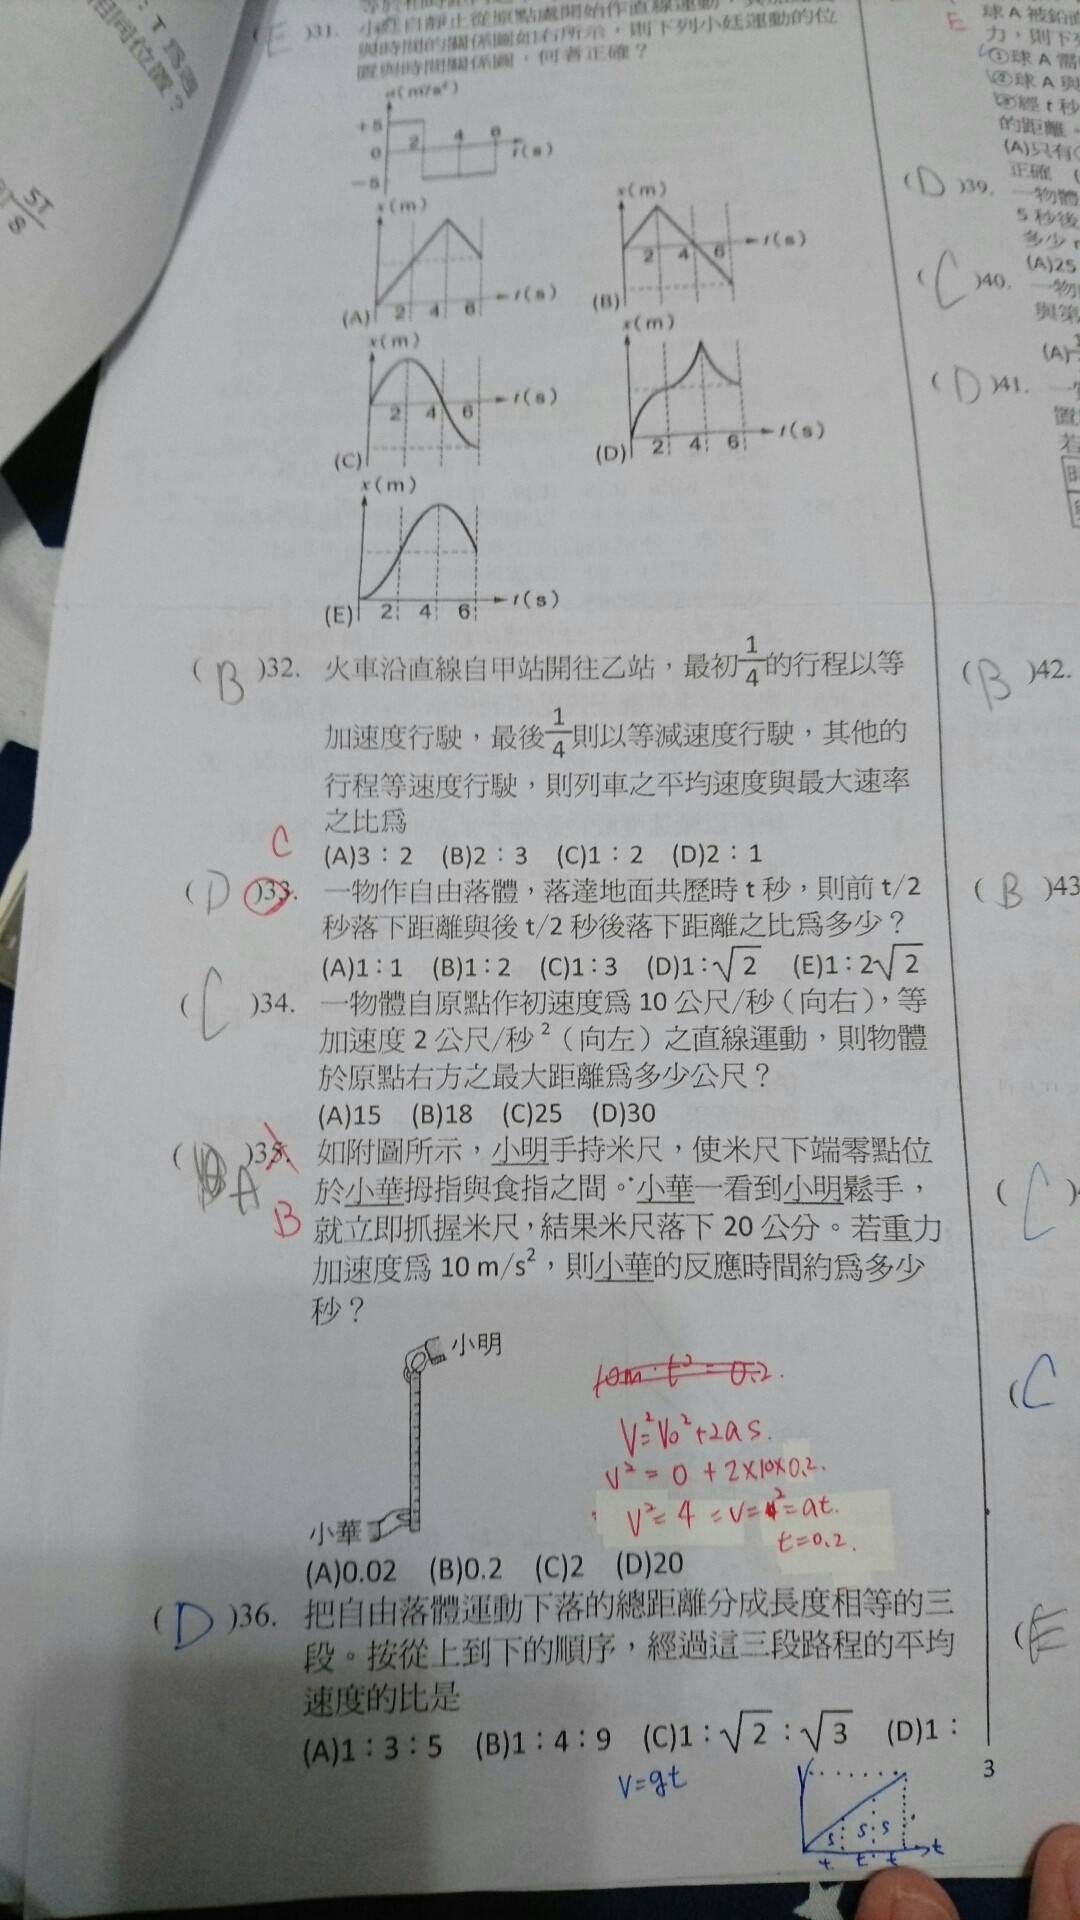 T 爲週
相同位置？
5T
8
(E)31. 小廷自靜止從原點處開始作直線運動，其加速度
與時間的關係圖如右所示，則下列小廷運動的位
置與時間關係圖，何者正確？
a(m/s²)
+5
0
-5
2 4 6
t(s)
x(m)
2 4 6 t(s)
(A)
x(m)
2 4 6 t(s)
(B)
x(m)
2 4 6 t(s)
(C)
x(m)
2 4 6 t(s)
(D)
x(m)
2 4 6 t(s)
(E)
(B)32. 火車沿直線自甲站開往乙站，最初1/4的行程以等
加速度行駛，最後1/4則以等減速度行駛，其他的
行程等速度行駛，則列車之平均速度與最大速率
之比爲
(A)3：2 (B)2：3 (C)1：2 (D)2：1
C
(D)33. 一物作自由落體，落達地面共歷時 t 秒，則前 t/2
秒落下距離與後 t/2 秒後落下距離之比爲多少？
(A)1：1 (B)1：2 (C)1：3 (D)1：√2 (E)1：2√2
(C)34. 一物體自原點作初速度爲 10 公尺/秒（向右），等
加速度 2 公尺/秒²（向左）之直線運動，則物體
於原點右方之最大距離爲多少公尺？
(A)15 (B)18 (C)25 (D)30
(A)35. 如附圖所示，小明手持米尺，使米尺下端零點位
於小華拇指與食指之間。小華一看到小明鬆手，
B
就立即抓握米尺，結果米尺落下 20 公分。若重力
加速度爲 10 m/s²，則小華的反應時間約爲多少
秒？
小明
小華
10m·t²=0.2.
V²=V₀²+2as.
v²=0+2×10×0.2.
V²=4=v=2=at.
t=0.2.
(A)0.02 (B)0.2 (C)2 (D)20
(D)36. 把自由落體運動下落的總距離分成長度相等的三
段。按從上到下的順序，經過這三段路程的平均
速度的比是
(A)1：3：5 (B)1：4：9 (C)1：√2：√3 (D)1：
v=gt
V
S S S
t t t
t
3
E
球 A 被鉛直
力，則下列
①球 A 需
②球 A 與
③經 t 秒
的距離
(A)只有
正確
(D)39. 一物體
5 秒後
多少
(A)25
(C)40. 一物
與第
(A)
(D)41. 一
置
若
時
(B)42.
(B)43
(C)
(C
(E